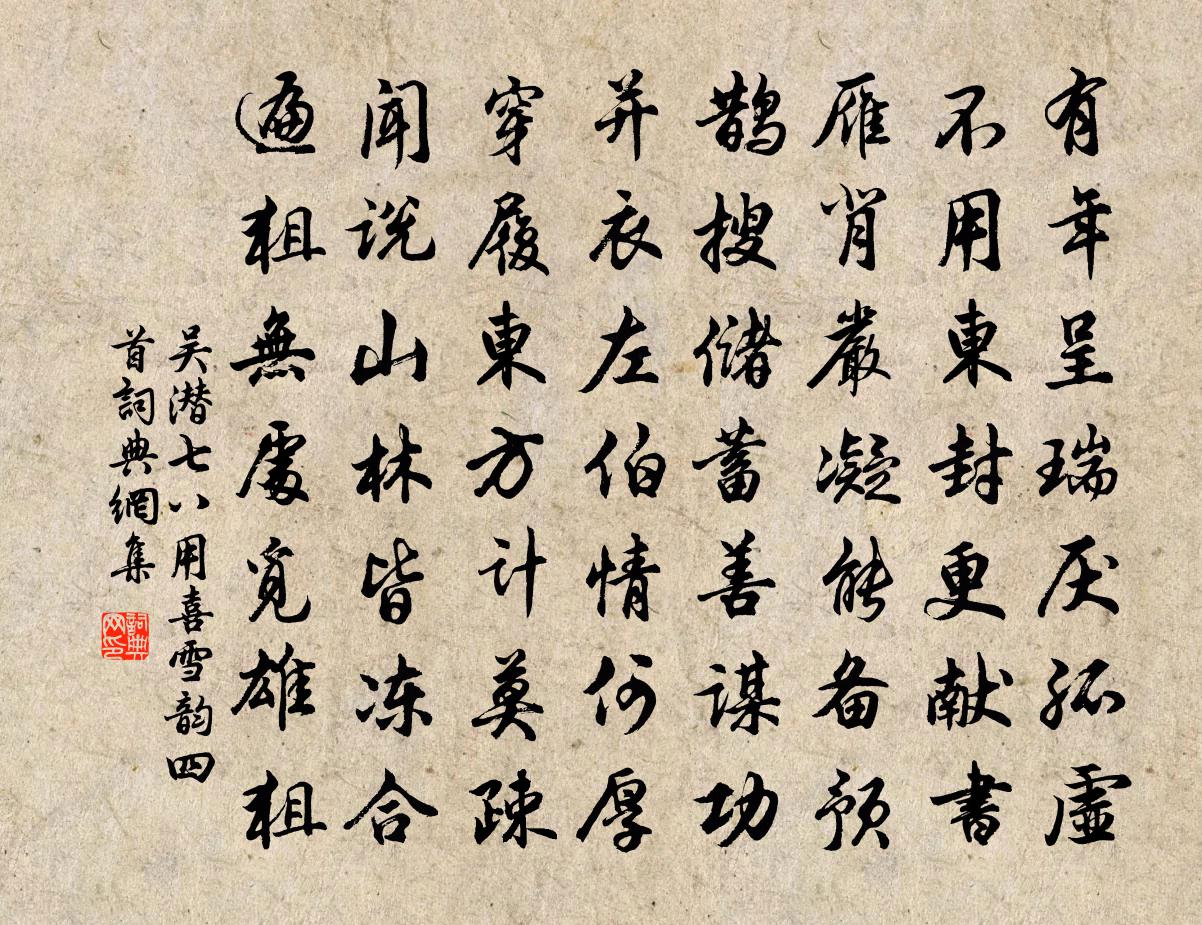 有年呈瑞厌孤虚
不用東封更献書
雁肖嚴凝能备预
鹊搜储蓄善谋功
并衣左伯情何厚
穿履東方计莫疎
闻说山林皆冻合
遍狙無處覓雄狙
吴潜七八用喜雪韵四
首詞典網集
詞典网印